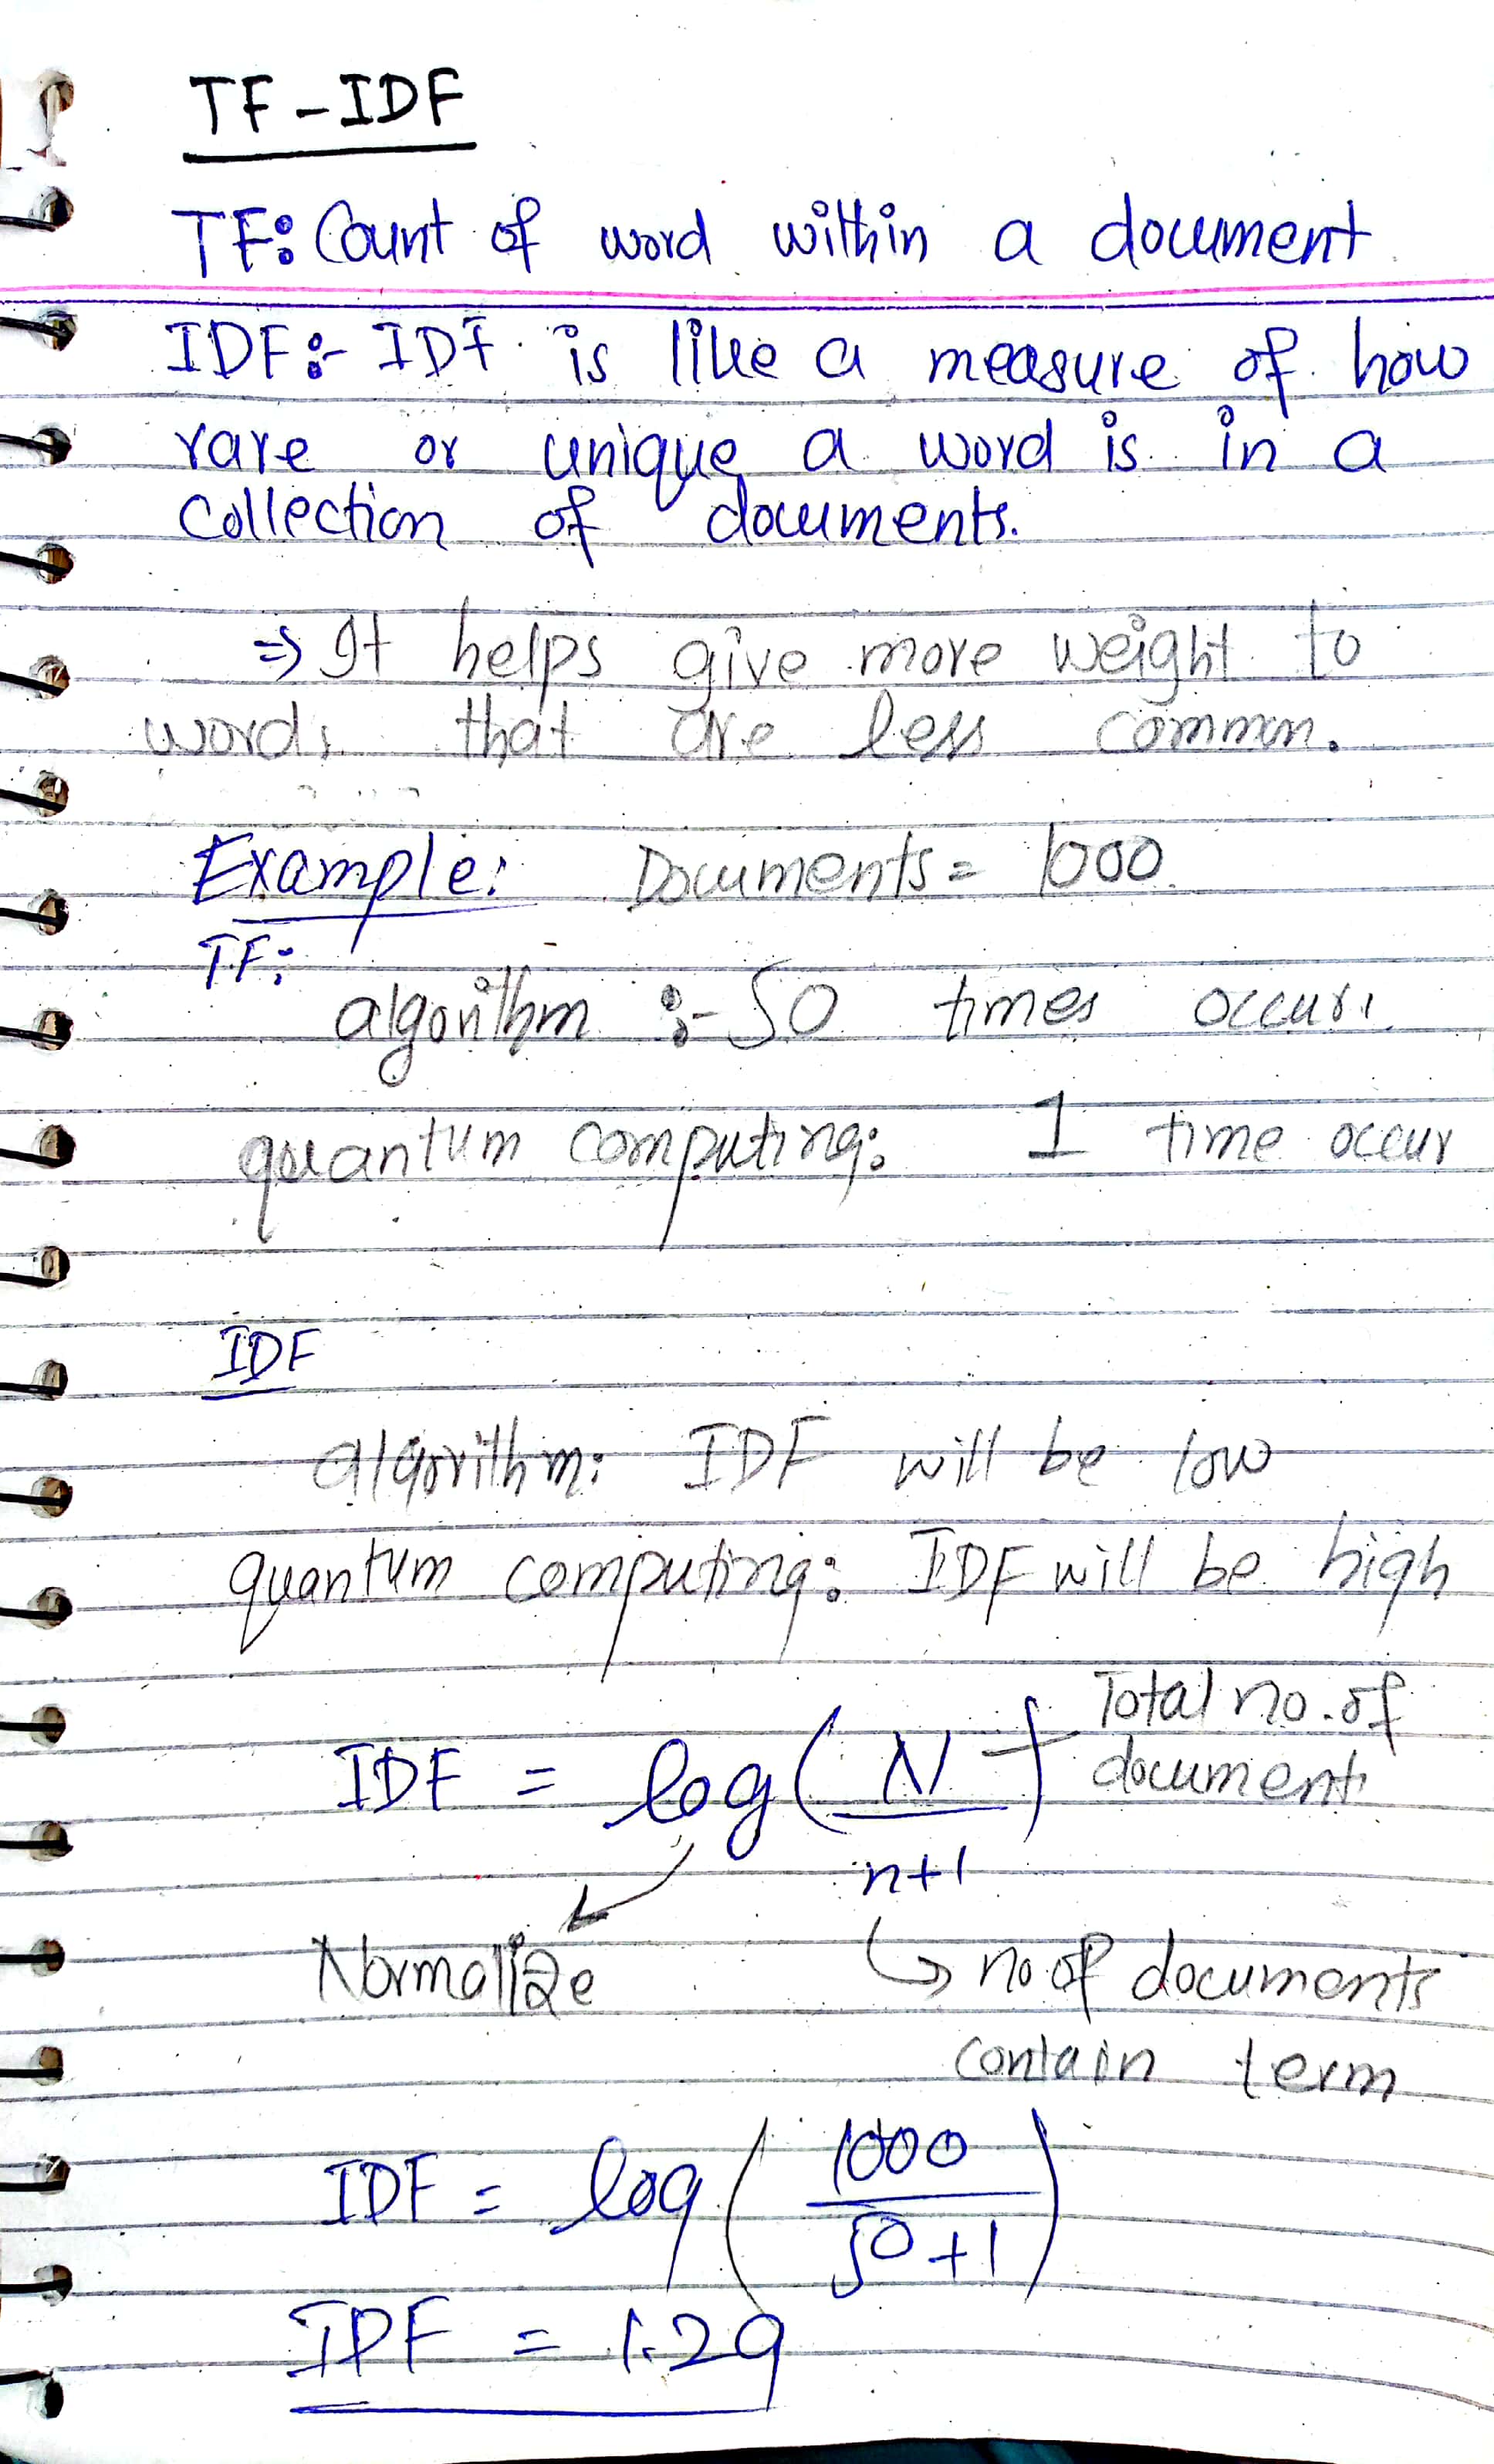 TF-IDF
TF: Count of word within a document
IDF:- IDF is like a measure of how
rare or unique a word is in a
collection of documents.
⇒ It helps give more weight to
words that are less common.
Example: Documents = 1000
TF:
algorithm :- 50 times occur.
quantum computing: 1 time occur
IDF
algorithm: IDF will be low
quantum computing: IDF will be high
Total no. of
IDF = log ( N ) documents
n+1
Normalize ↳ no of documents
contain term
IDF = log ( 1000
50+1 )
IDF = 1.29